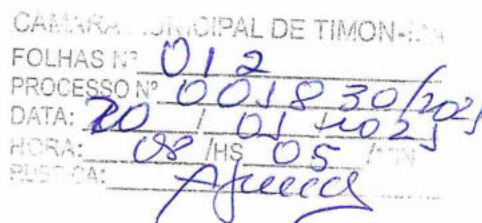 CAMARA MUNICIPAL DE TIMON-MA
FOLHAS Nº 012
PROCESSO Nº 001830/2025
DATA: 20 / 01 /2025
HORA: 08 /HS 05 /MIN
RUBRICA: